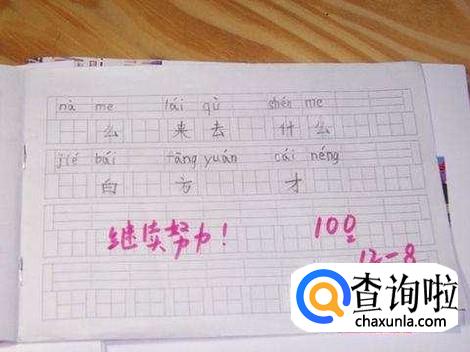 nà me lái qù shén me
么 来 去 什 么
jié bái fāng yuán cái néng
白 方 才
继续努力! 100
12-8
查询啦
chaxunla.com